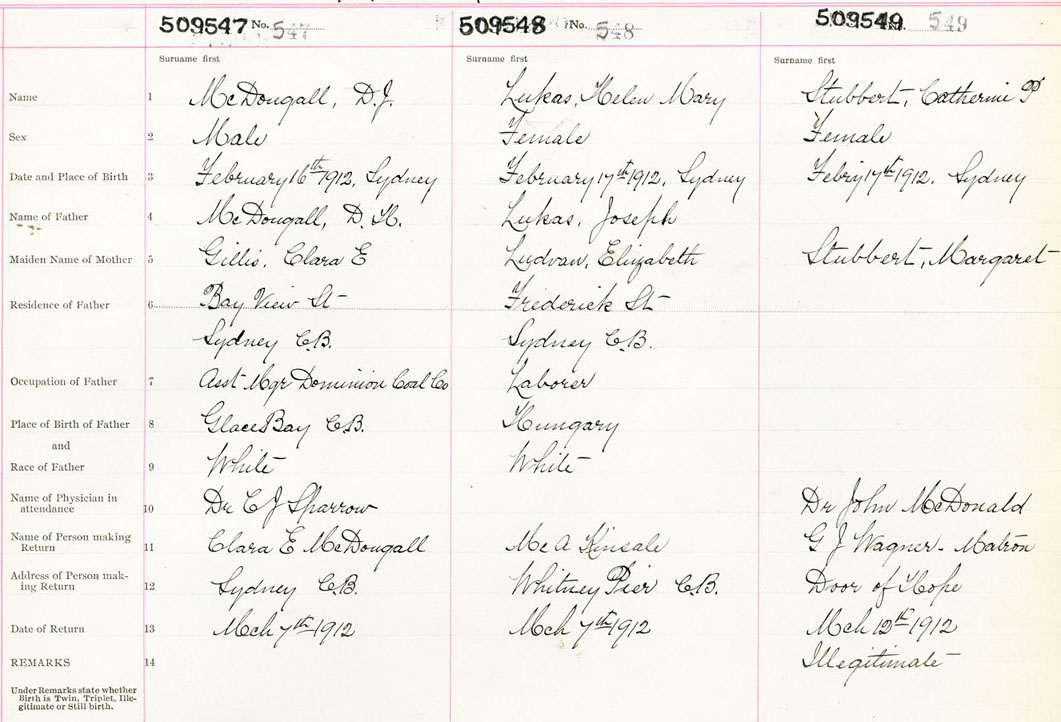 509547 No. 547 509548 No. 548 509549 No. 549
Surname first Surname first Surname first
Name 1 McDougall, D.J. Lukas, Helen Mary Stubbert, Catherine P
Sex 2 Male Female Female
Date and Place of Birth 3 February 16th 1912, Sydney February 17th 1912, Sydney Febry 17th 1912, Sydney
Name of Father 4 McDougall, D. H. Lukas, Joseph
Maiden Name of Mother 5 Gillis, Clara E Ludvan, Elizabeth Stubbert, Margaret
Residence of Father 6 Bay View St Frederick St
Sydney C.B. Sydney C.B.
Occupation of Father 7 Asst Mgr Dominion Coal Co Laborer
Place of Birth of Father 8 Glace Bay C.B. Hungary
and
Race of Father 9 White White
Name of Physician in
attendance 10 Dr C J Sparrow Dr John McDonald
Name of Person making
Return 11 Clara E McDougall Mc A Kinsale G J Wagner - Matron
Address of Person mak-
ing Return 12 Sydney C.B. Whitney Pier C.B. Door of Hope
Date of Return 13 Mch 7th 1912 Mch 7th 1912 Mch 12th 1912
REMARKS 14 Illegitimate
Under Remarks state whether
Birth is Twin, Triplet, Ille-
gitimate or Still birth.